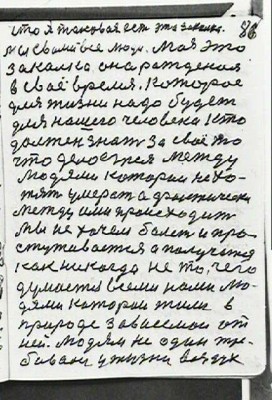 что я таковая есть это закалка. 86
Мы с вами все люди. Моя это
закалка она рождения
в своё время, которое
для жизни надо будет
для нашего человека кто
должен знать за своё то
что делается между
людями которои не хо-
тят умерат а фактически
между ими происходит
Мы не хочем болет и про-
стуживаетса а получаетса
как никогда не то, чего
думается всеми нами лю-
дями которои жили в
природе зависимои от
ней. Людям не один тре-
бовани у жизни воздух